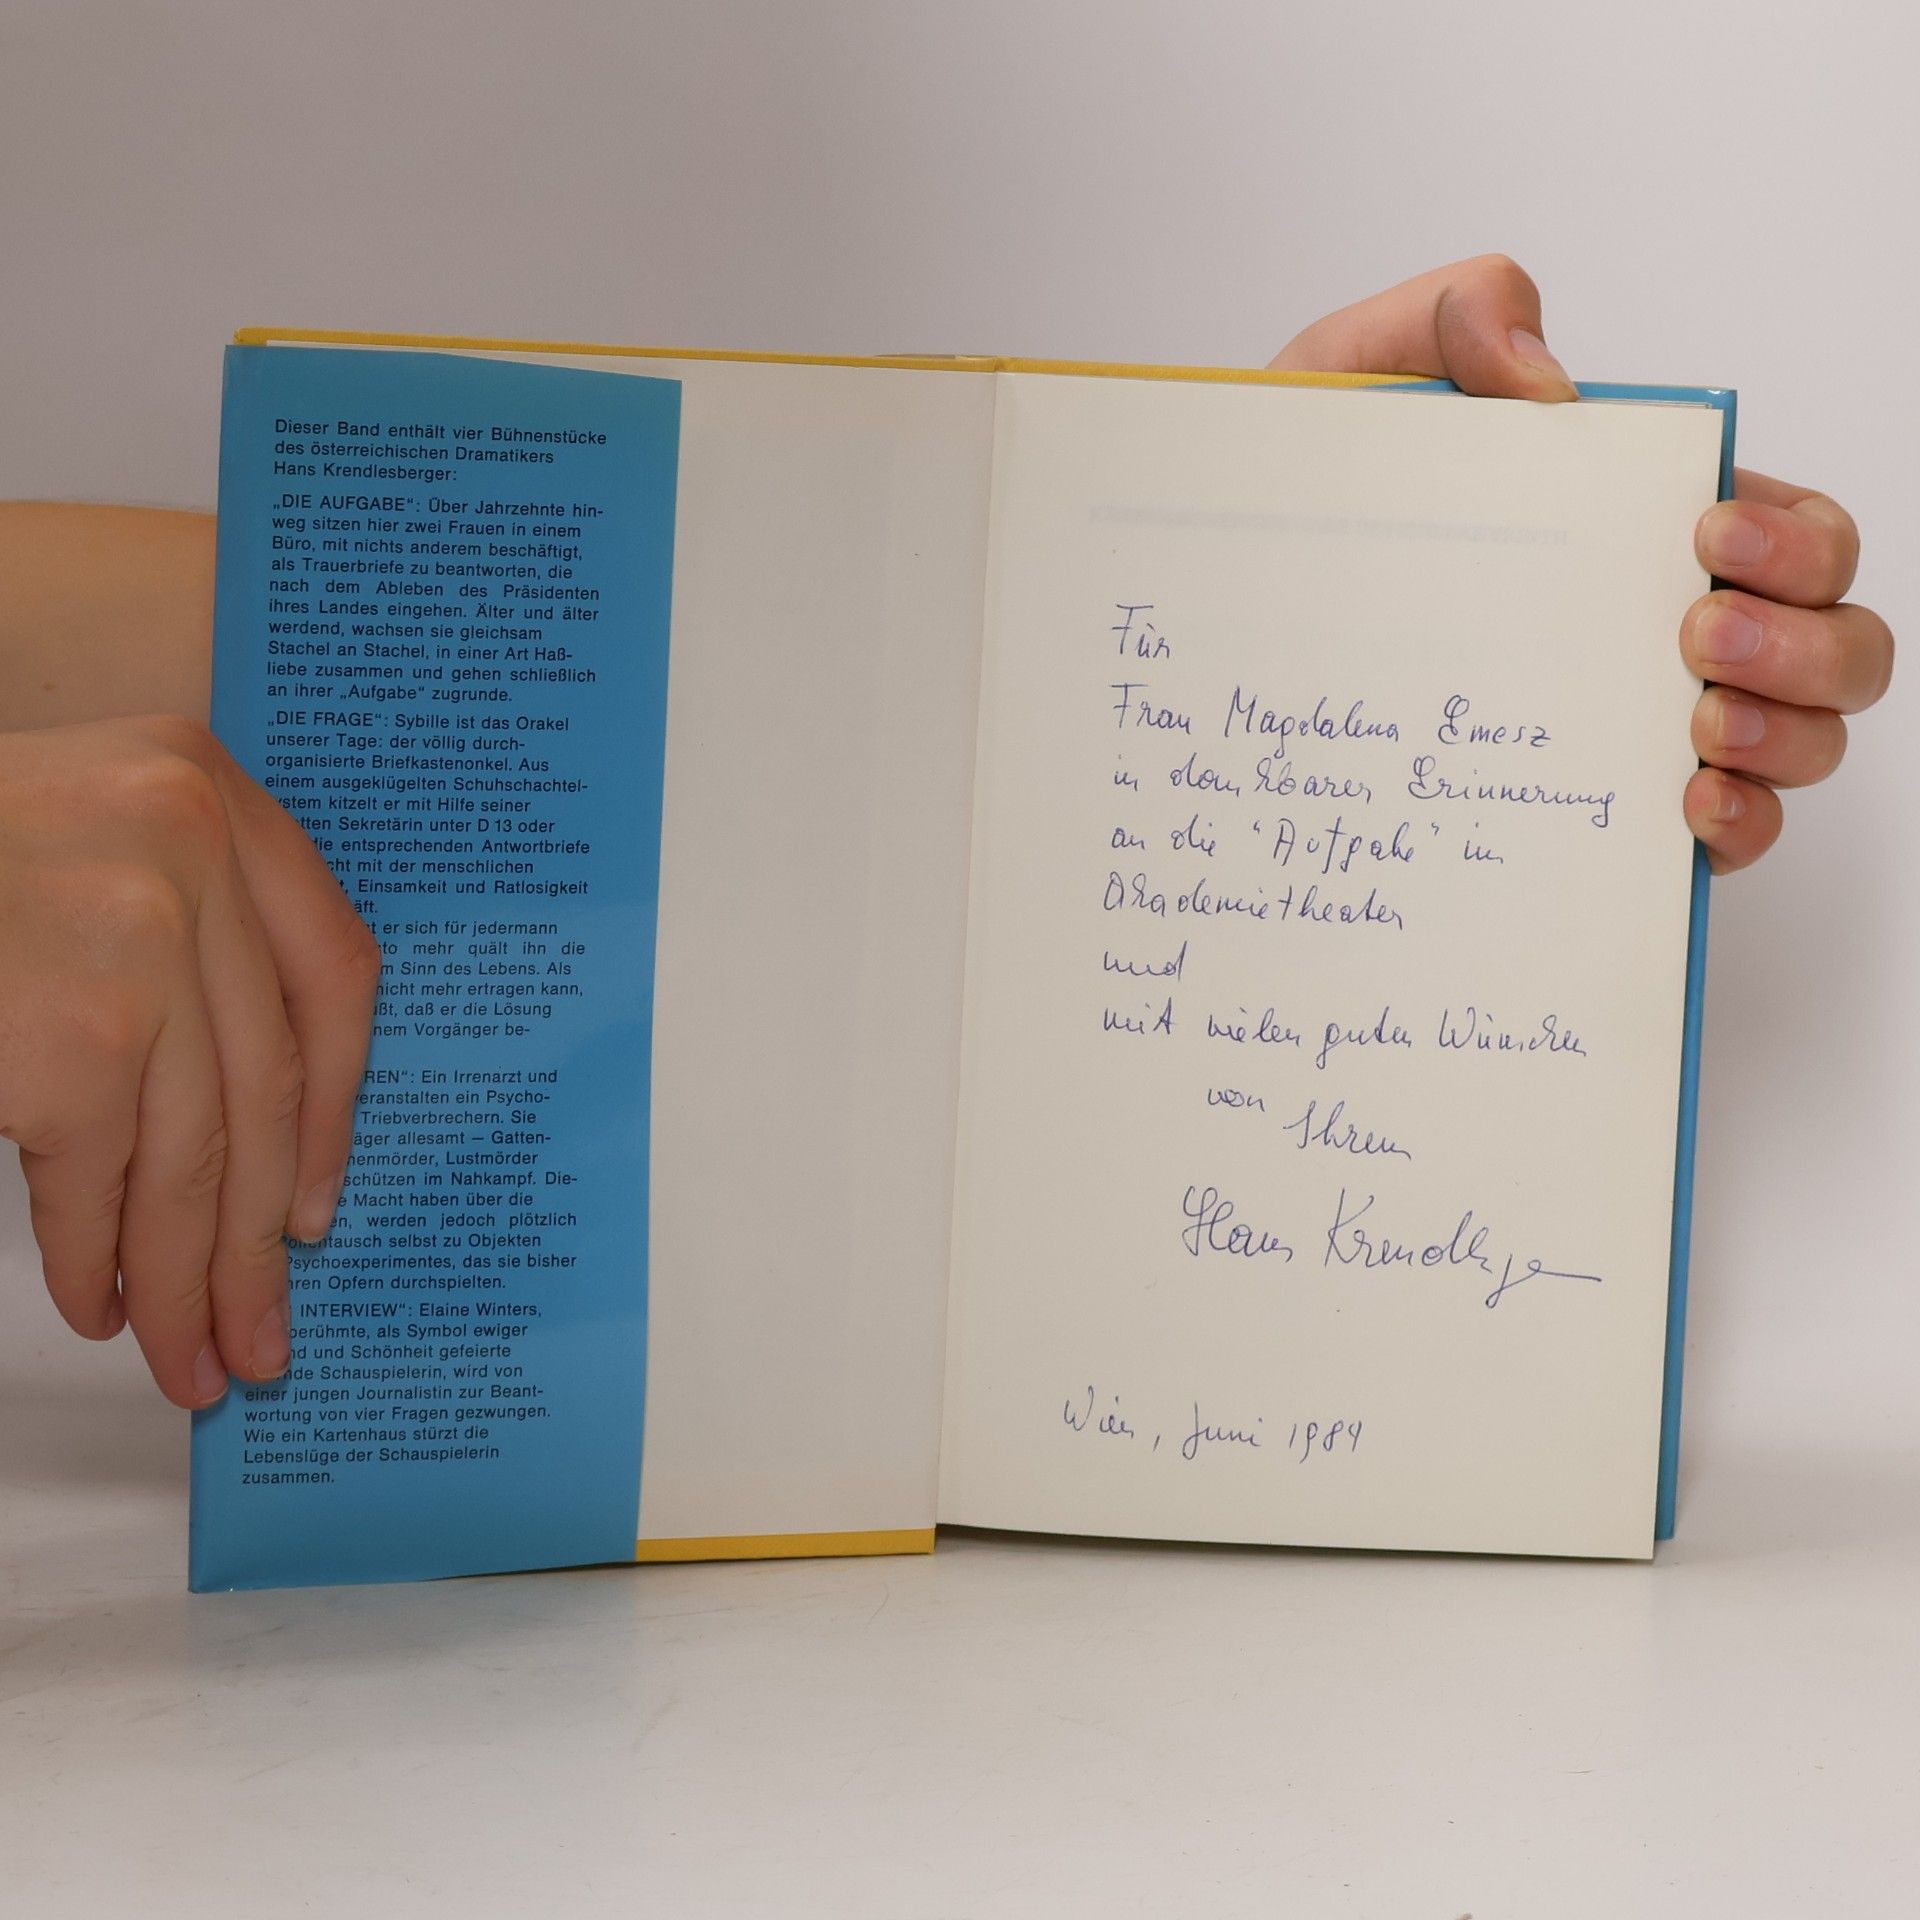 Dieser Band enthält vier Bühnenstücke
des österreichischen Dramatikers
Hans Krendlesberger:
„DIE AUFGABE“: Über Jahrzehnte hin-
weg sitzen hier zwei Frauen in einem
Büro, mit nichts anderem beschäftigt,
als Trauerbriefe zu beantworten, die
nach dem Ableben des Präsidenten
ihres Landes eingehen. Älter und älter
werdend, wachsen sie gleichsam
Stachel an Stachel, in einer Art Haß-
liebe zusammen und gehen schließlich
an ihrer „Aufgabe“ zugrunde.
„DIE FRAGE“: Sybille ist das Orakel
unserer Tage: der völlig durch-
organisierte Briefkastenonkel. Aus
einem ausgeklügelten Schuhschachtel-
ystem kitzelt er mit Hilfe seiner
tten Sekretärin unter D 13 oder
die entsprechenden Antwortbriefe
cht mit der menschlichen
t, Einsamkeit und Ratlosigkeit
äft.
t er sich für jedermann
to mehr quält ihn die
m Sinn des Lebens. Als
nicht mehr ertragen kann,
ßt, daß er die Lösung
nem Vorgänger be-
REN“: Ein Irrenarzt und
veranstalten ein Psycho-
Triebverbrechern. Sie
äger allesamt — Gatten-
henmörder, Lustmörder
schützen im Nahkampf. Die-
e Macht haben über die
en, werden jedoch plötzlich
ollentausch selbst zu Objekten
Psychoexperimentes, das sie bisher
hren Opfern durchspielten.
INTERVIEW“: Elaine Winters,
berühmte, als Symbol ewiger
nd und Schönheit gefeierte
nde Schauspielerin, wird von
einer jungen Journalistin zur Beant-
wortung von vier Fragen gezwungen.
Wie ein Kartenhaus stürzt die
Lebenslüge der Schauspielerin
zusammen.
Für
Frau Magdalena Emesz
in dankbarer Erinnerung
an die "Aufgabe" im
Akademietheater
und
mit vielen guten Wünschen
von Ihrem
Hans Krendlesberger
Wien, Juni 1984